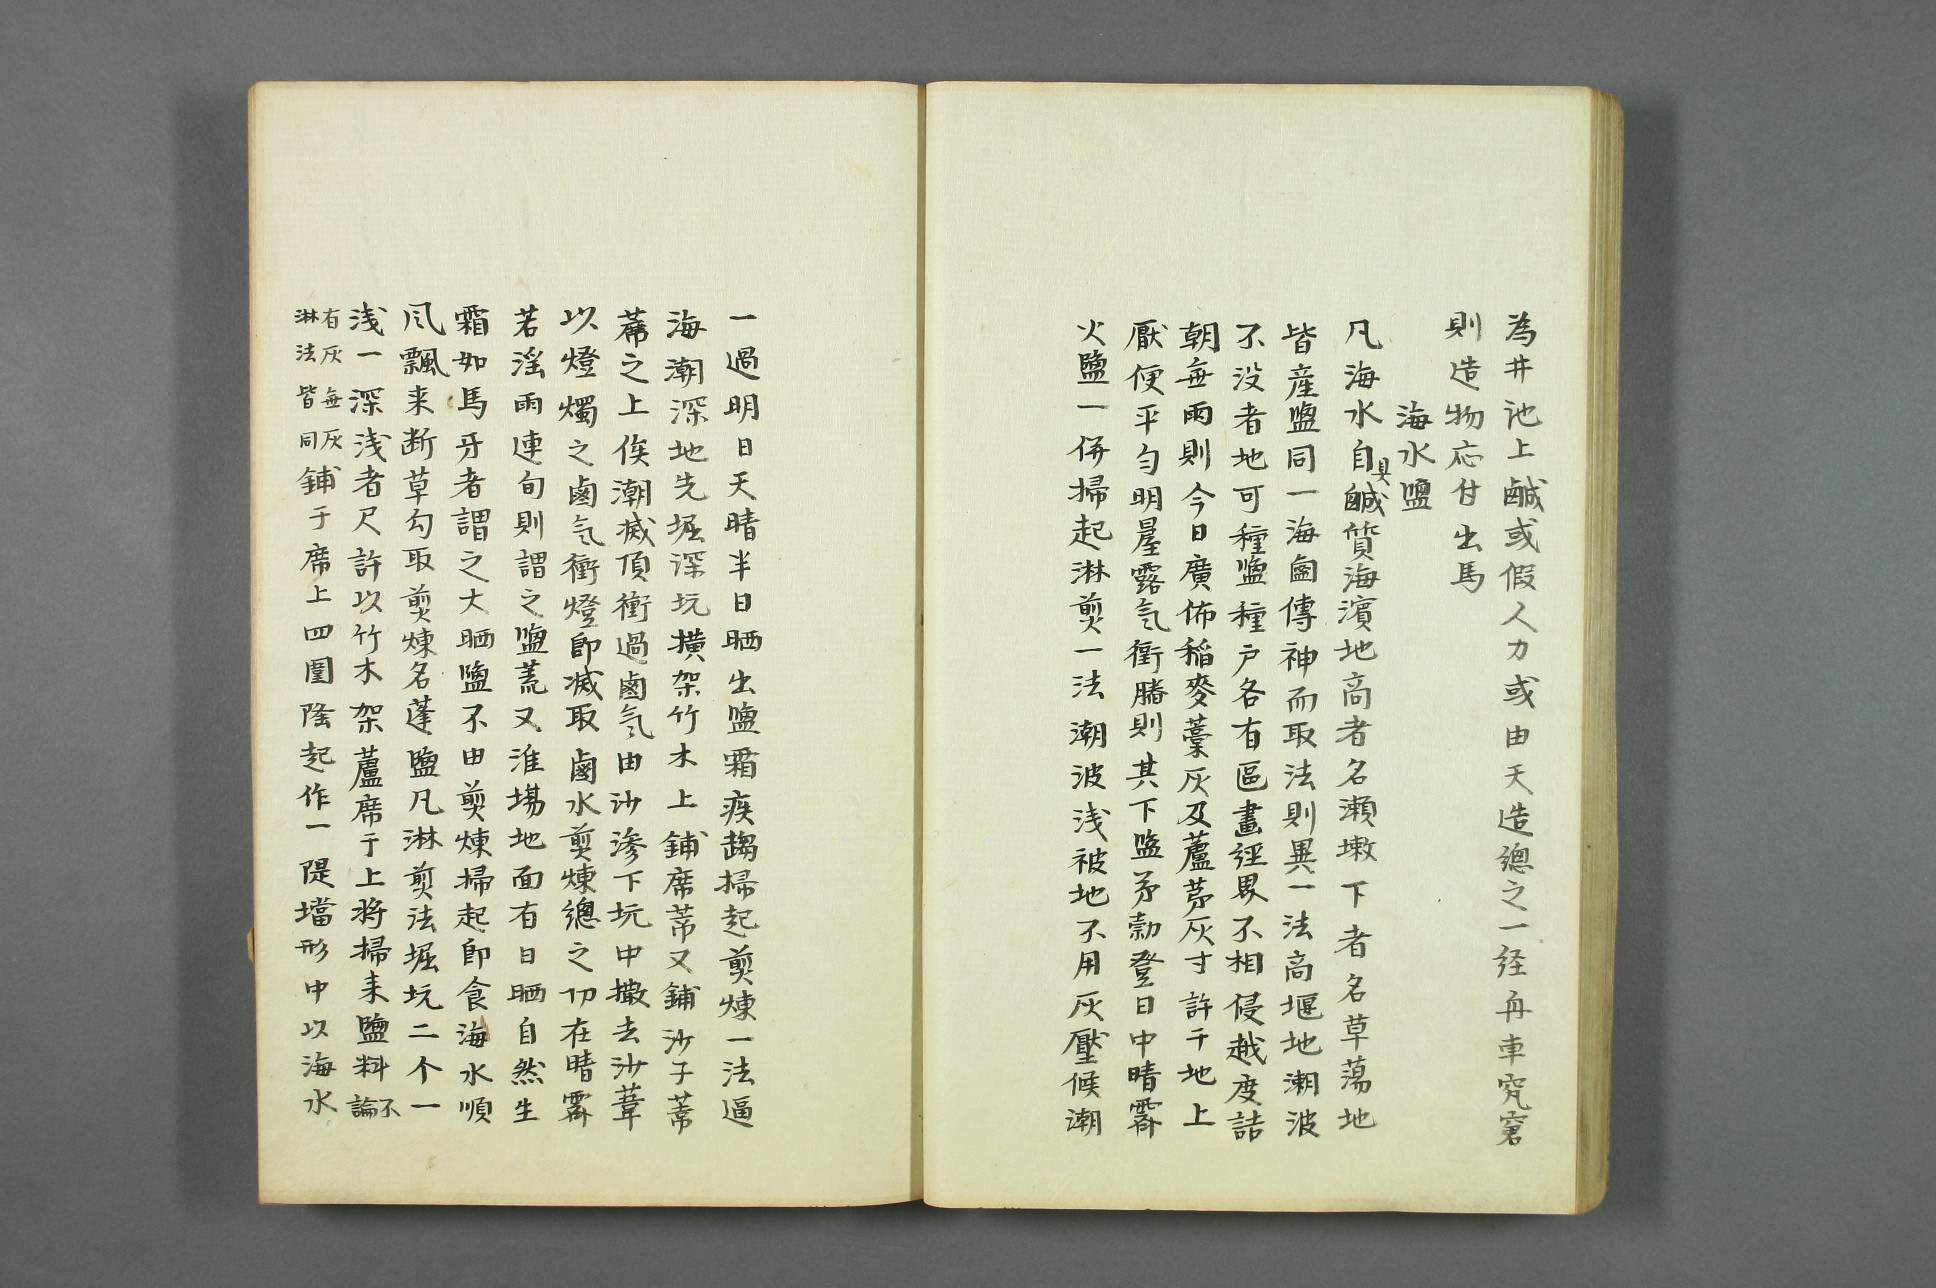 為井池上鹹或假人力或由天造總之一経舟車窮窘
則造物応付出馬
海水鹽
凡海水自具鹹質海濱地高者名瀬墩下者名草蕩地
皆産塩同一海鹵傳神而取法則異一法高堰地潮波
不没者地可種塩種戸各有區畫経界不相侵越度詰
朝無雨則今日廣佈稲麥藁灰及蘆茅灰寸許于地上
厭便平勻明晨露気衝騰則其下塩茅勃發日中晴霽
火鹽一併掃起淋煎一法潮波浅被地不用灰壓候潮
一過明日天晴半日晒出塩霜疾趨掃起煎煉一法逼
海潮深地先堀深坑横架竹木上鋪席葦又鋪沙子葦
蓆之上俟潮減頂衝過鹵気由沙滲下坑中撤去沙葦
以燈燭之鹵気衝燈即滅取鹵水煎煉總之功在晴霽
若淫雨連旬則謂之塩荒又淮場地面有日晒自然生
霜如馬牙者謂之大晒鹽不由煎煉掃起即食海水順
風飄来断草勾取煎煉名蓬鹽凡淋煎法堀坑二个一
浅一深浅者尺許以竹木架蘆席于上将掃来鹽料不論
有灰無灰淋法皆同鋪于席上四圍隆起作一隄壋形中以海水